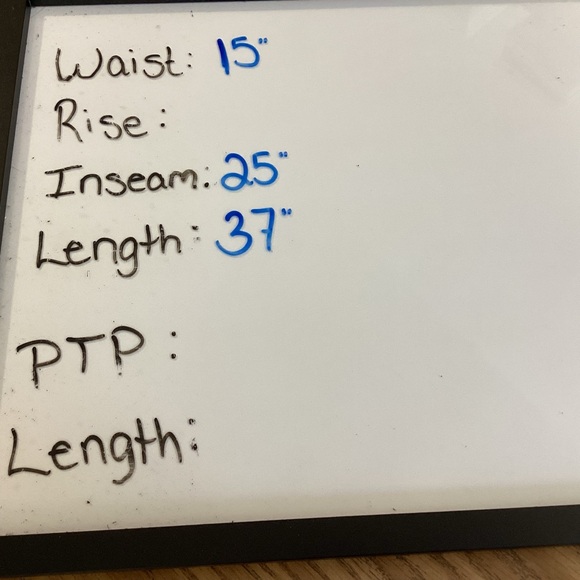 Waist: 15"
Rise:
Inseam: 25"
Length: 37"
PTP:
Length: